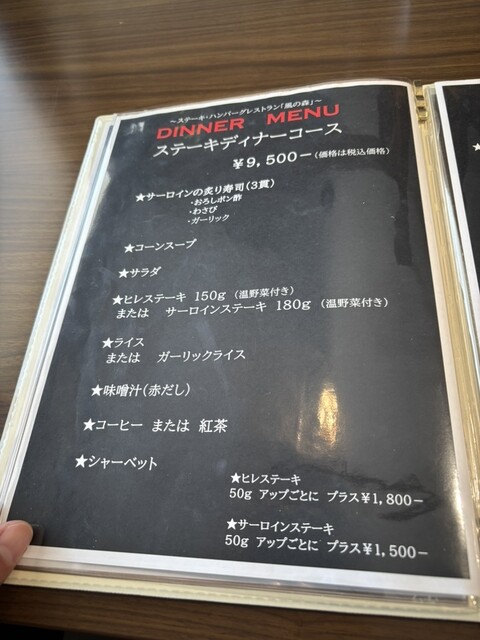 ～ステーキ・ハンバーグレストラン「風の森」～
DINNER MENU
ステーキディナーコース
￥9,500－(価格は税込価格)
★サーロインの炙り寿司(3貫)
・おろしポン酢
・わさび
・ガーリック
★コーンスープ
★サラダ
★ヒレステーキ 150g (温野菜付き)
または サーロインステーキ 180g (温野菜付き)
★ライス
または ガーリックライス
★味噌汁(赤だし)
★コーヒー または 紅茶
★シャーベット
★ヒレステーキ
50g アップごとに プラス￥1,800－
★サーロインステーキ
50g アップごとに プラス￥1,500－